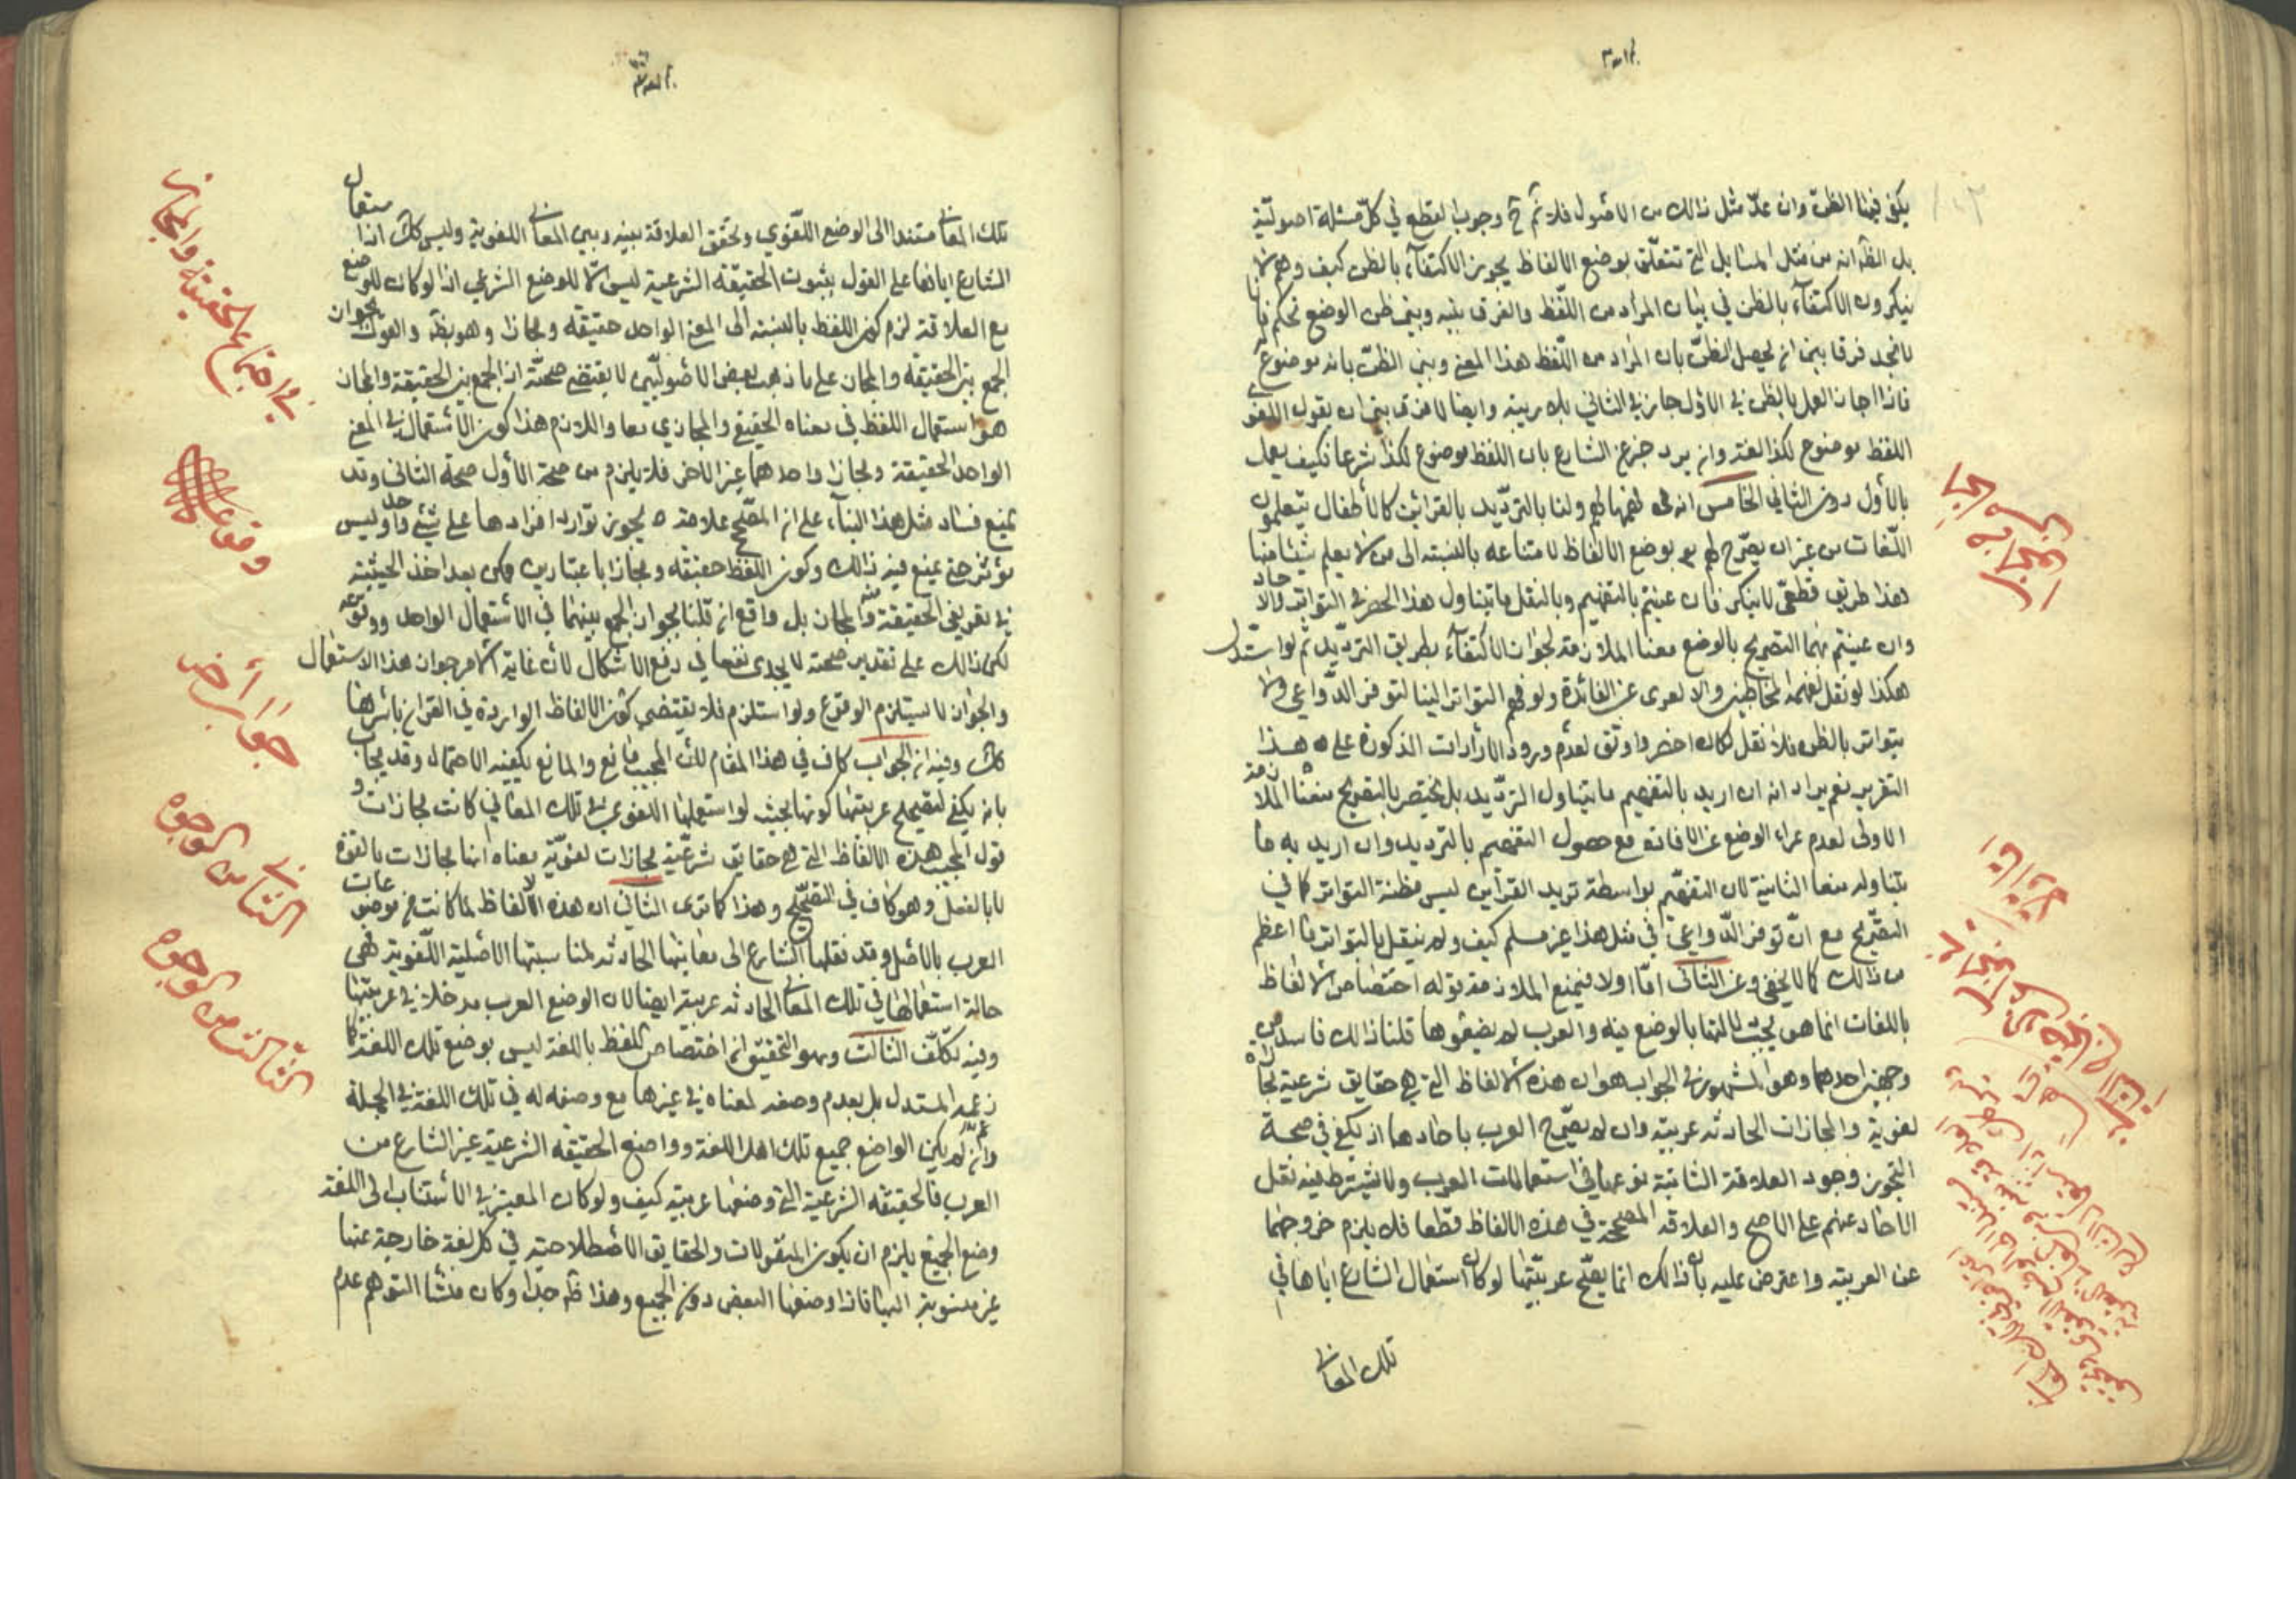 يكفى فيها الظن وان عدّ مثل ذالك من الاصول فلا ثم وجوب القطع في كلّ مسئلة اصوليّة
بل الظ انه من مثل المسايل التي تتعلّق بوضع الالفاظ يجوز الاكتفاء بالظن كيف وهم لا
ينكرون الاكتفاء بالظن في بيان المراد من اللّفظ والفرق بينه وبين ظن الوضع تحكم فانا
لا نجد فرقا بين ان يحصل الظنّ بان المراد من اللّفظ هذا المعنى وبين الظنّ بانه موضوع له
فاذا جاز العمل بالظن في الاول جاز في الثاني بلا ريبة وايضا لا فرق بين ان يقول اللغوي
اللفظ موضوع لكذا لغة وان يرد خبر عن الشارع بان اللفظ موضوع لكذا شرعا فكيف يعمل
بالأول دون الثاني الخامس انه فهمها لهم ولنا بالترديد بالقراين كالأطفال يتعلمون
اللّغات من غير ان يصرّح لهم بوضع الالفاظ لامتناعه بالنسبة الى من لا يعلم شيئا منها
هذا طريق قطعى لا ينكر فان عنيتم بالتفهيم وبالنقل ما يتناول هذا الحصر في التواتر والآحاد
وان عنيتم بهما التصريح بالوضع منعنا الملازمة لجواز الاكتفاء بطريق الترديد ثم لو استدل
هكذا لو نقل لفهمه المخاطبين والا لعرى عن الفائدة ولو فهم التواتر الينا لتوفر الدّواعي ولا
يتواتر بالظن فلا نقل لكان اخصر واوثق لعدم ورود الايرادات المذكورة على هذا
التقرير نعم يراد انه ان اريد بالتفهيم ما يتناول الترّديد بل يختص بالتصريح منعنا الملازمة
الاولى لعدم عراء الوضع عن الافادة مع حصول التفهيم بالترديد وان اريد به ما
يتناوله منعنا الثانية لان التفهّم بواسطة ترديد القرآين ليس مظنة التواتر كما في
التصّريح مع انّ توفر الدّواعي في مثل هذا غير مسلم كيف ولم ينقل بالتواتر ما اعظم
من ذالك كما لا يخفى وعن الثانى امّا اولا فبمنع الملازمة قوله اختصاص الالفاظ
باللغات انما هو بحسب دلالتها بالوضع فيه والعرب لم يضعوها قلنا ذالك فاسد من
وجهين احدهما وهو المشهور في الجواب هو ان هذه الالفاظ التي هي حقايق شرعية مجازات
لغوية والمجازات الحادثه عربية وان لم يصّرح العرب باحادها اذ يكفي في صحة
التجوز وجود العلاقة الثابتة نوعها في استعمالات العرب ولا يشترط فيه نقل
الاحاد عنهم على الاصح والعلاقة المصححة في هذه الالفاظ قطعا فلا يلزم خروجها
عن العربية واعترض عليه بان ذالك انما يصّح عربيّتها لو كان استعمال الشارع اياها في
تلك المعانى
تلك المعانى مستندا الى الوضع اللّغوي وتحقق العلاقة بينه وبين المعانى اللغوية وليس كك اذ استعمال
الشارع اياها على القول بثبوت الحقيقه الشرعية ليس الا للوضع الشرعي اذ لو كان للوضع
مع العلاقة لزم كون اللفظ بالنسبة الى المعنى الواحد حقيقه ومجازا وهو بط والقول بجواز
الجمع بين الحقيقه والمجاز على ما ذهب بعض الاصوليّين لا يقتضى صحّته اذ الجمع بين الحقيقة والمجاز
هو استعمال اللفظ في معناه الحقيقي والمجازي معا واللازم هذا كون الاستعمال في المعنى
الواحد الحقيقة ومجازا واحدهما غير الاخر فلا يلزم من صحة الأول صحة الثانى وقد
يمنع فساد مثل هذا البناء على ان المصحّح علامة يجوز توارد افرادها على شئ واحد وليس
مؤثر حتى يمنع فيه ذالك وكون اللفظ حقيقه ومجازا باعتبارين ممكن بعد اخذ الحيثية
في تعريفي الحقيقة والمجاز بل واقع ان قلنا بجواز الجمع بينهما في الاستعمال الواحد ووقوعه
لكن ذالك على تقدير صحته لا يجدى نفعا في دفع الاشكال لان غاية الامر جواز هذا الاستعمال
والجواز لا يستلزم الوقوع ولو استلزم فلا يقتضي كون الالفاظ الواردة في القران باسرها
كك وفيه ان الجواب كاف في هذا المقام لان المجيب مانع والمانع يكفيه الاحتمال وقد يجاب
بانه يكفي لتصحيح عربيتها كونها بحيث لو استعملها اللغوي في تلك المعاني كانت مجازات و
قول المجيب هذه الالفاظ التي هي حقايق شرعيّة مجازات لغويّة معناه انها مجازات بالقوة
لا بالفعل وهو كاف في التصحّيح وهذا كما ترى الثاني ان هذه الالفاظ لما كانت من موضوعات
العرب بالاصل وقد نقلها الشارع الى معانيها الحادثه لمناسبتها الاصلية اللّغوية فهى
حالة استعمالها في تلك المعانى الحادثه عربية ايضا لان الوضع العرب مدخلا في عربيّتها
وفيه تكلّف الثالث وهو التحقيق ان اختصاص اللفظ باللغة ليس بوضع تلك اللغة كما
زعمه المستدل بل بعدم وضعه لمعناه في غيرها مع وضعه له في تلك اللغة في الجملة
وان لم يكن الواضع جميع تلك اهل اللغة وواضع الحقيقه الشرعية غير الشارع من
العرب فالحقيقه الشرعية التي وضعها عربية كيف ولو كان المعتبر في الانتساب الى اللغة
وضع الجميع يلزم ان يكون المنقولات والحقايق الاصطلاحية في كل لغة خارجة عنها
غير منسوبة اليها فاذا وضعها البعض دون الجميع وهذا ظ جدا وكان منشأ التوهم عدم
في اجتماع الحقيقة والمجاز
وقوعا
جواب أخر
الثانى من الوجوه
الثالث من الوجوه